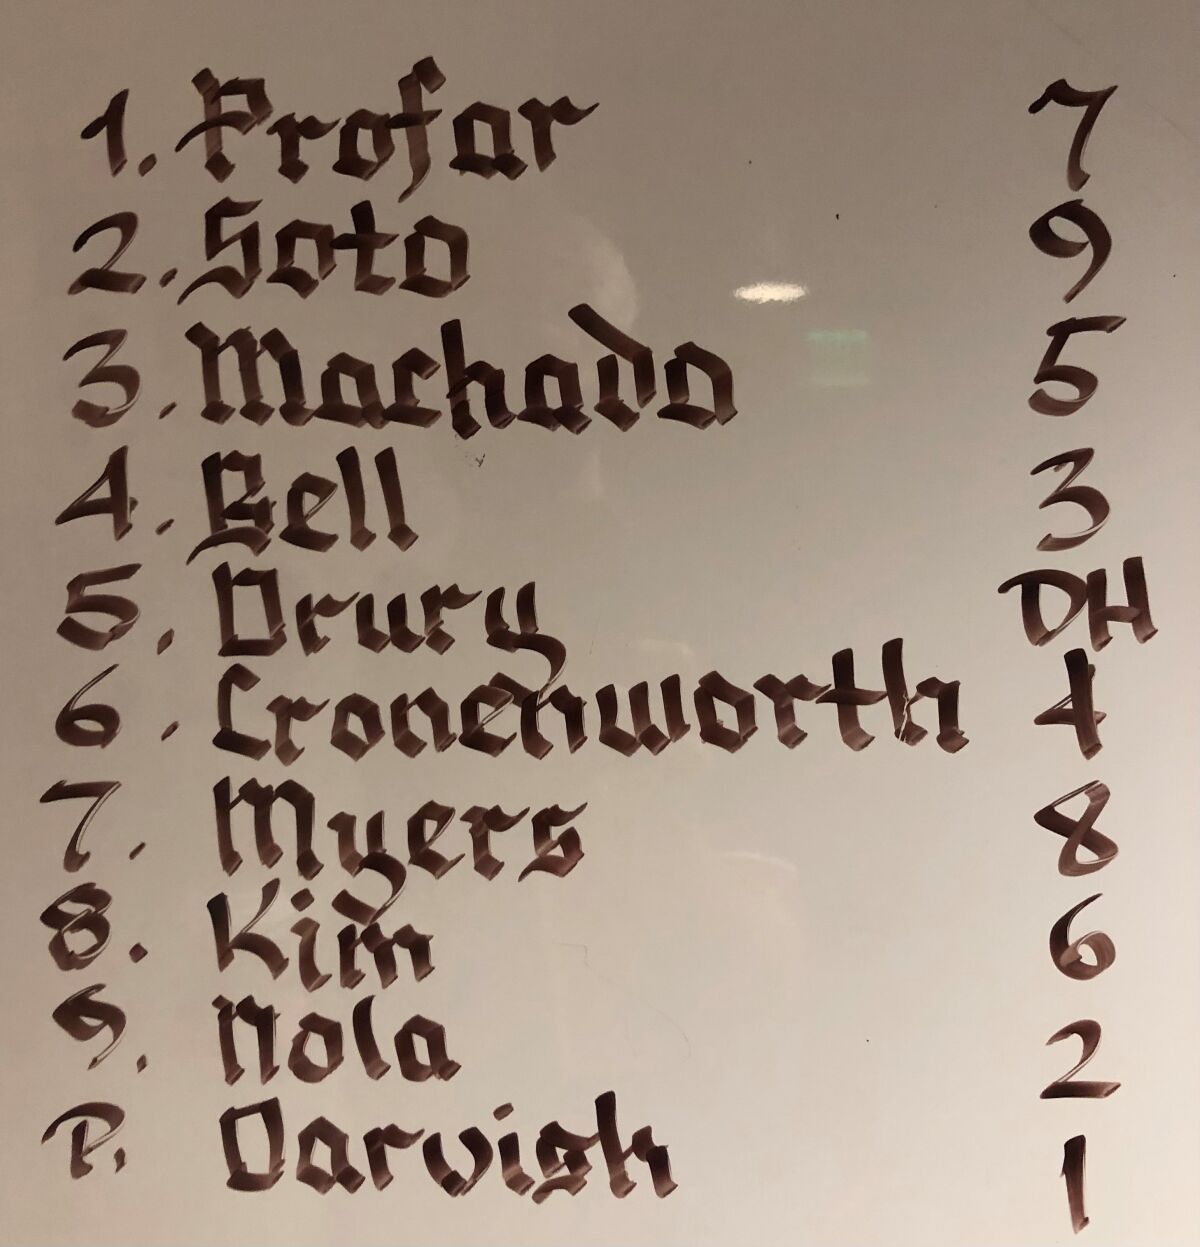 1. Profar 7
2. Soto 9
3. Machado 5
4. Bell 3
5. Drury DH
6. Cronenworth 4
7. Myers 8
8. Kim 6
9. Nola 2
P. Darvish 1